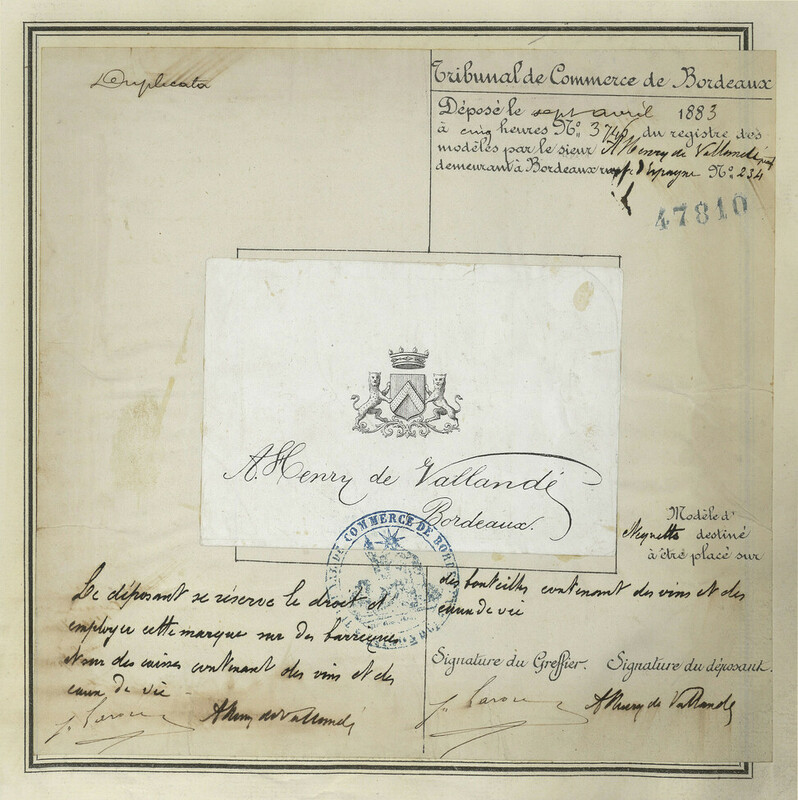 Duplicata
Tribunal de Commerce de Bordeaux
Déposé le sept avril 1883
à cinq heures No. 374 du registre des
modèles par le sieur A Henry de Vallandé
demeurant à Bordeaux d'Espagne No. 234
47810
A. Henry de Vallandé
Bordeaux.
DE COMMERCE DE BORD
Modèle d'
destiné
à être placé sur
des bouteilles contenant des vins et des
eaux de vie
Le déposant se réserve le droit d
employer cette marque sur des barriques
et sur des caisses contenant des vins et des
eaux de vie
Signature du Greffier. Signature du déposant.
A Henry de Vallandé
A Henry de Vallandé